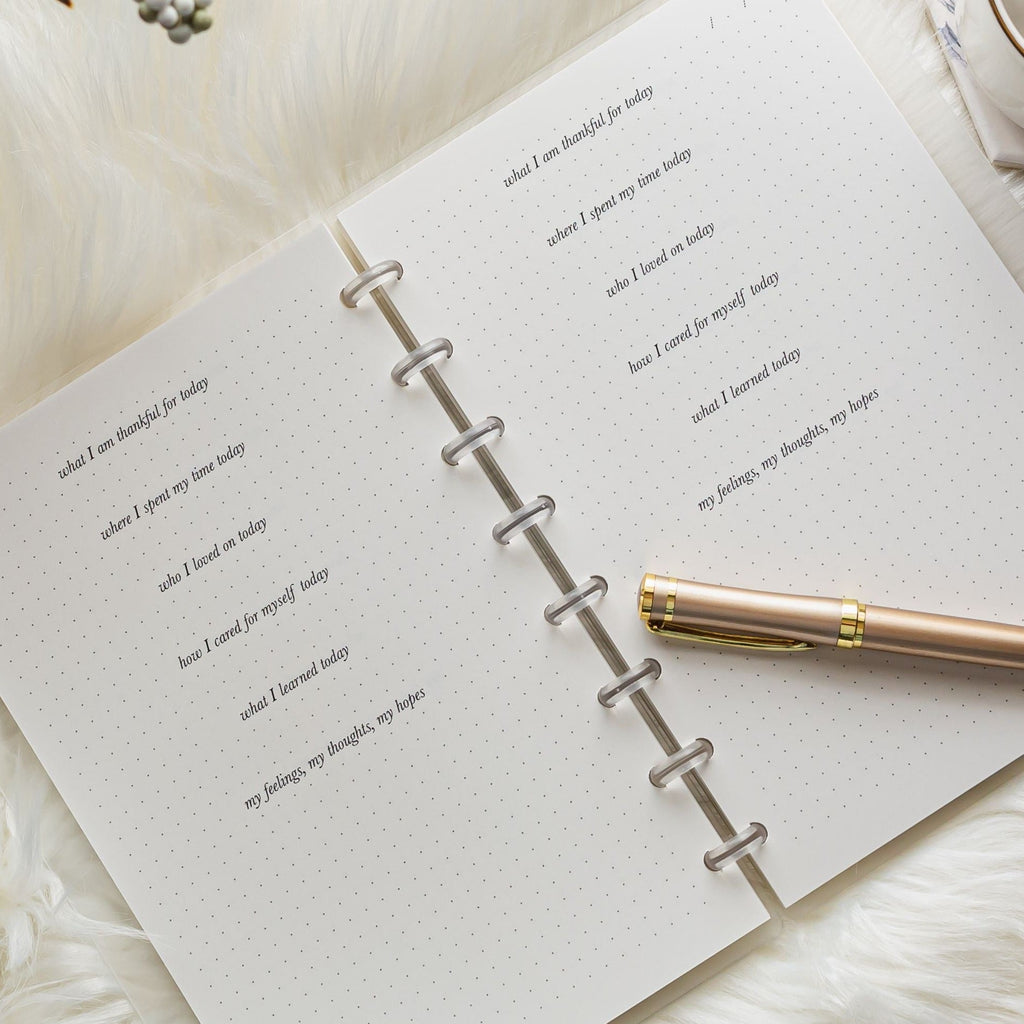 what I am thankful for today
where I spent my time today
who I loved on today
how I cared for myself today
what I learned today
my feelings, my thoughts, my hopes
what I am thankful for today
where I spent my time today
who I loved on today
how I cared for myself today
what I learned today
my feelings, my thoughts, my hopes